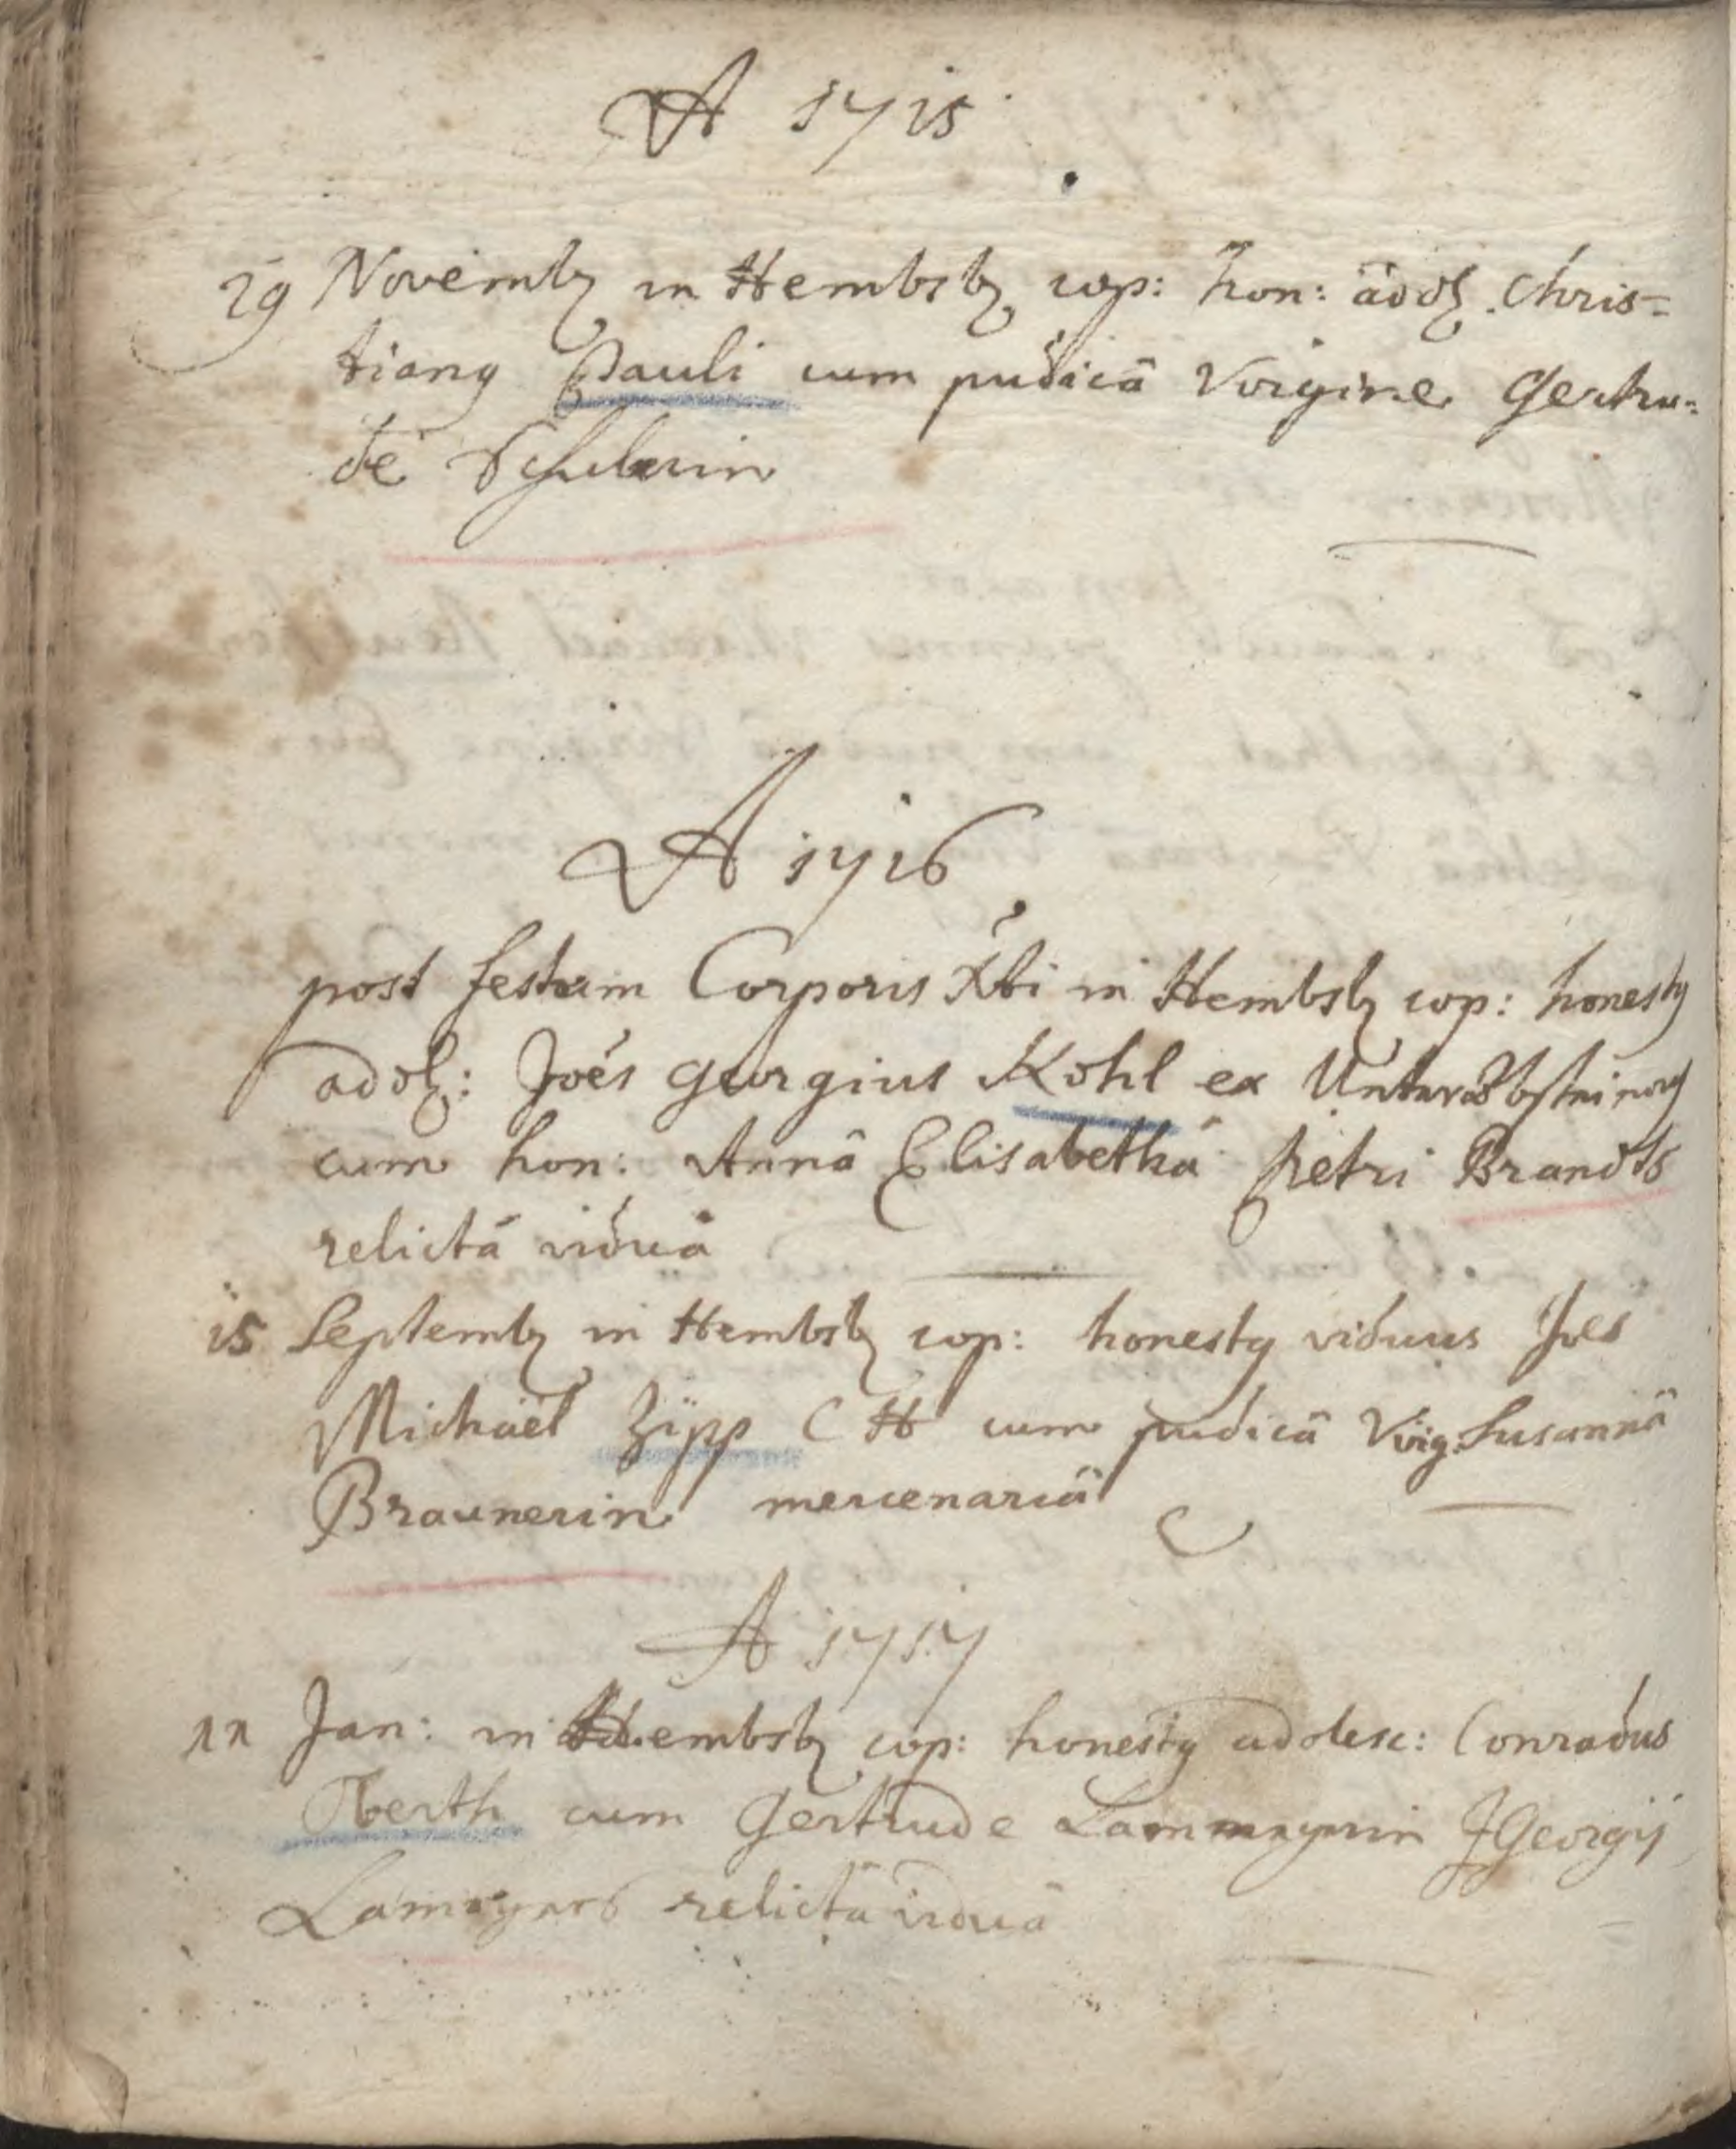 A 1715
29 Novemb in Hembsb cop: hon: adol. Chris=
tiang Pauli cum pudicâ Virgine Gertru=
de Schulerin
A 1716
post festum Corporis Xti in Hembsb cop: honestg
adol: Joës georgius Kohl ex
cum hon: Annâ Elisabethâ petri Brandts
relictâ viduâ
15 Septemb in Hembsb cop: honestg viduus Joes
Michäel Zipp C H cum pudicâ Virg: Susannâ
Braunerin mercenariâ
A 1717
11 Jan: in Hembsb cop: honestg adolesc: Conradus
Oberth cum Gertrude JGeorgij
relictâ viduâ